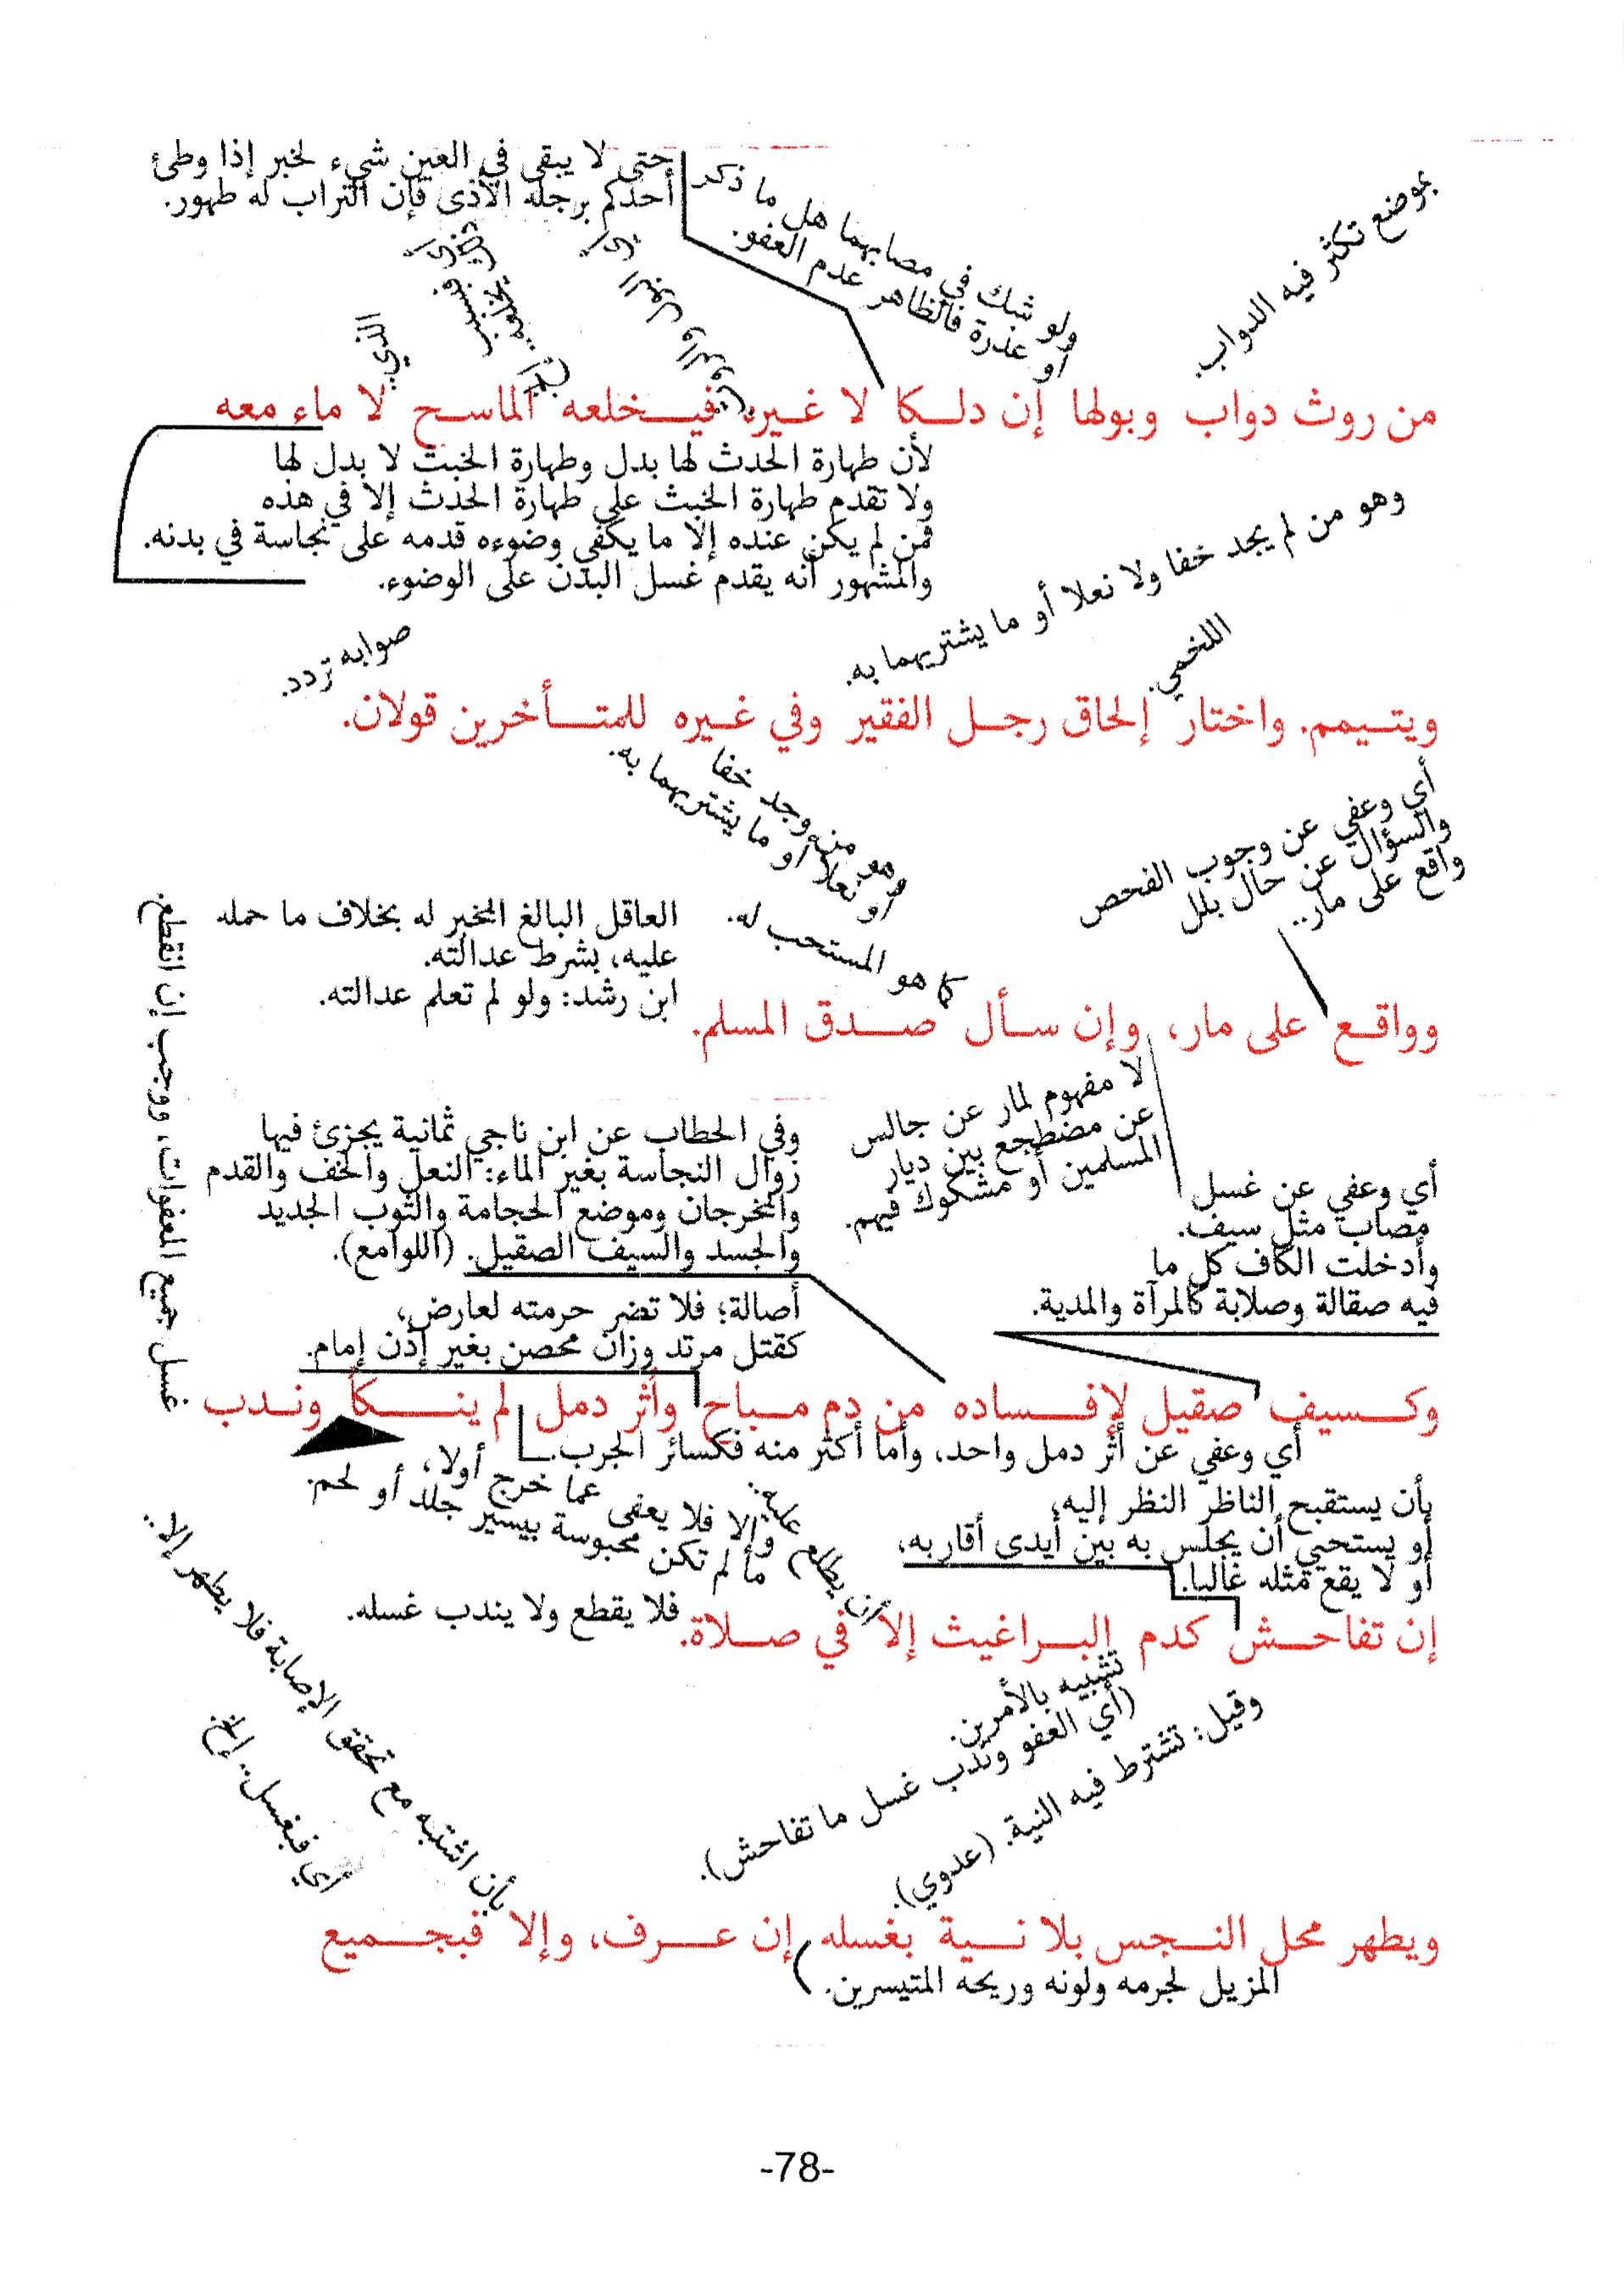 حتى لا يبقى في العين شيء لخبر إذا وطئ
أحدكم برجله الأذى فإن التراب له طهور.
ولو شك في مصابهما هل ما ذكر
أو عذرة فالظاهر عدم العفو.
بموضع تكثر فيه الدواب.
الذي
من روث دواب وبولها إن دلكا لا غيره فيخلعه الماسح لا ماء معه
لأن طهارة الحدث لها بدل وطهارة الخبث لا بدل لها
ولا تقدم طهارة الخبث على طهارة الحدث إلا في هذه
فمن لم يكن عنده إلا ما يكفي وضوءه قدمه على نجاسة في بدنه.
والمشهور أنه يقدم غسل البدن على الوضوء.
وهو من لم يجد خفا ولا نعلا أو ما يشتريهما به.
اللخمي.
صوابه تردد.
ويتيمم. واختار إلحاق رجل الفقير وفي غيره للمتأخرين قولان.
وهو من وجد خفا
أو نعلا أو ما يشتريهما به.
أي وعفي عن وجوب الفحص
والسؤال عن حال بلل
واقع على مار..
كما هو المستحب له.
العاقل البالغ المخبر له بخلاف ما حمله
عليه، بشرط عدالته.
ابن رشد: ولو لم تعلم عدالته.
وواقع على مار، وإن سأل صدق المسلم.
لا مفهوم لمار عن جالس
عن مضطجع بين ديار
المسلمين أو مشكوك فيهم.
وفي الحطاب عن ابن ناجي ثمانية يجزئ فيها
زوال النجاسة بغير الماء: النعل والخف والقدم
والمخرجان وموضع الحجامة والثوب الجديد
والجسد والسيف الصقيل. (اللوامع).
أي وعفي عن غسل
مصاب مثل سيف.
وأدخلت الكاف كل ما
فيه صقالة وصلابة كالمرآة والمدية.
أصالة؛ فلا تضر حرمته لعارض،
كقتل مرتد وزان محصن بغير إذن إمام.
وكسيف صقيل لإفساده من دم مباح وأثر دمل لم ينكأ وندب
أي وعفي عن أثر دمل واحد، وأما أكثر منه فكسائر الجرب.
وإلا فلا يعفى عما خرج أولا،
ما لم تكن محبوسة بيسير جلد أو لحم.
بأن يستقبح الناظر النظر إليه،
أو يستحيي أن يجلس به بين أيدى أقاربه،
أو لا يقع مثله غالبا.
أن يطلع عليه.
فلا يقطع ولا يندب غسله.
إن تفاحش كدم البراغيث إلا في صلاة.
تشبيه بالأمرين.
(أي العفو وندب غسل ما تفاحش).
وقيل: تشترط فيه النية. (عدوي).
بأن اشتبه مع تحقق الإصابة فلا يطهر إلا..
أي فبغسل.. إلخ
ويطهر محل النجس بلا نية بغسله إن عرف، وإلا فبجميع
المزيل لجرمه ولونه وريحه المتيسرين.
غسل جميع المعفوات، ووجب إن انقطع.
-78-